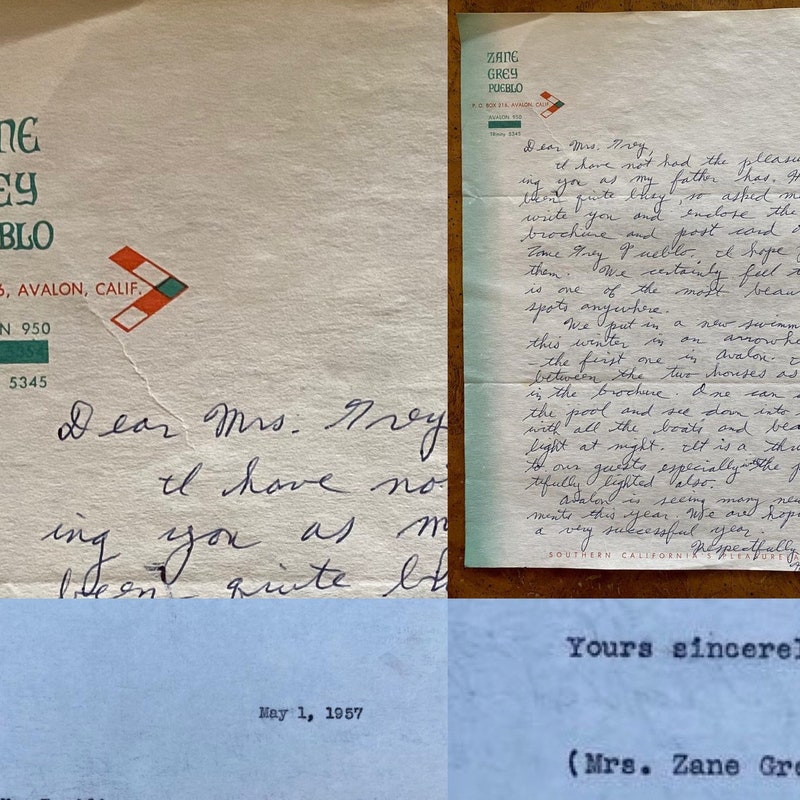 NE
EY
BLO
6, AVALON, CALIF.
N 950
5345
Dear Mrs. Grey
I have no
ing you as m
been quite b
ZANE
GREY
PUEBLO
P. O. BOX 216, AVALON, CALIF.
AVALON 950
TRinity 5345
Dear Mrs. Grey,
I have not had the pleasu
ing you as my father has. H
been quite busy, so asked m
write you and enclose the
brochure and post card
Zane Grey Pueblo. I hope
them. We certainly feel t
is one of the most beau
spots anywhere.
We put in a new swimm
this winter in an arrowhe
the first one in Avalon.
between the two houses as
in the brochure. One can
the pool and see down into
with all the boats and bea
light at night. It is a thr
to our guests especially the p
tifully lighted also.
Avalon is seeing many new
ments this year. We are hopi
a very successful year.
Respectfully
SOUTHERN CALIFORNIA'S PLEASURE
May 1, 1957
Yours sincerel
(Mrs. Zane Gre